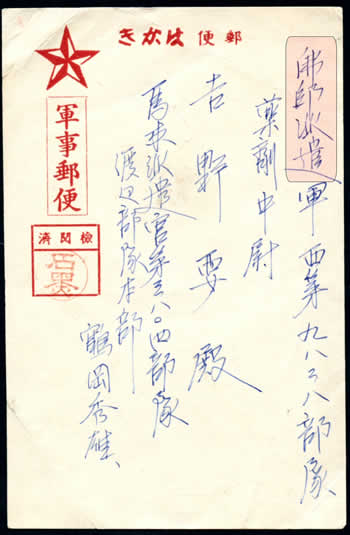 郵便はかき
軍事郵便
檢閲済
派遣軍西第九八三八部隊
薬剤中尉
吉野要殿
馬来派遣富第三八〇四部隊
渡辺部隊本部
鶴岡秀雄